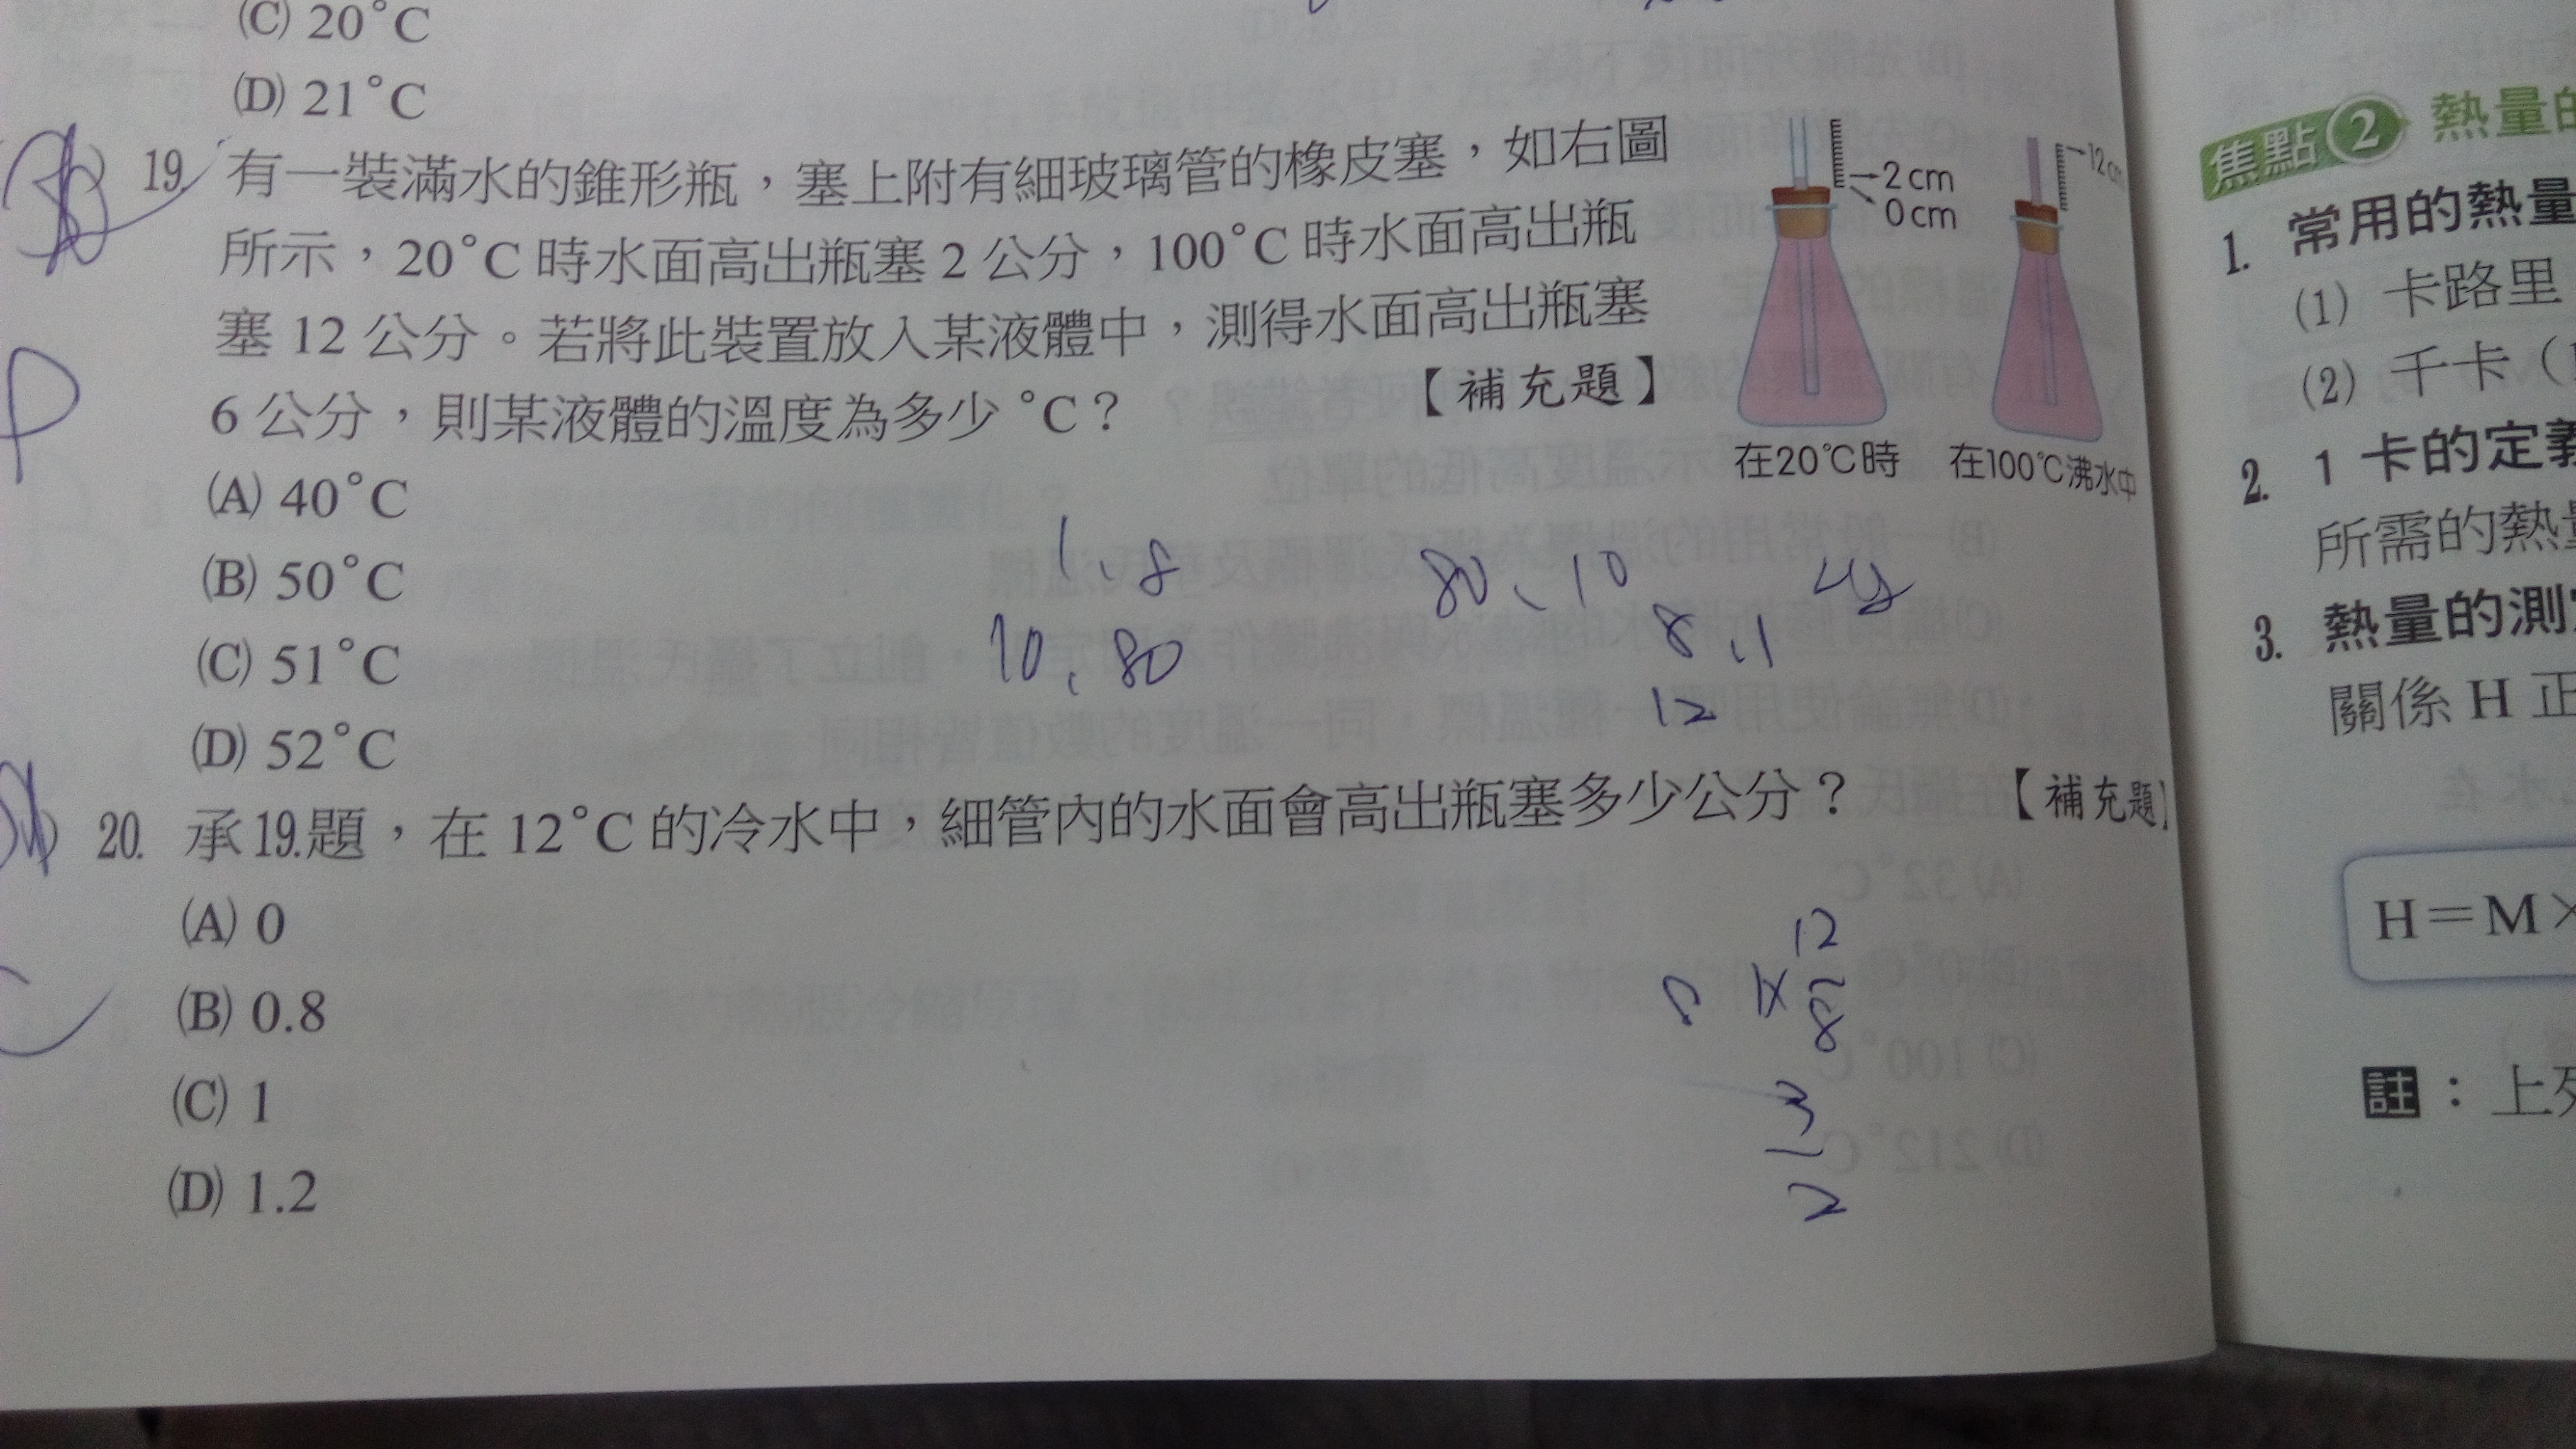 (C) 20°C
(D) 21°C
19. 有一裝滿水的錐形瓶，塞上附有細玻璃管的橡皮塞，如右圖
所示，20°C 時水面高出瓶塞 2 公分，100°C 時水面高出瓶
塞 12 公分。若將此裝置放入某液體中，測得水面高出瓶塞
6 公分，則某液體的溫度為多少 °C？ 【補充題】
(A) 40°C
(B) 50°C
(C) 51°C
(D) 52°C
2cm
0cm
12cm
在20℃時
在100℃沸水中
1、8
10、80
80、10
8、1
12
20. 承19.題，在 12°C 的冷水中，細管內的水面會高出瓶塞多少公分？ 【補充題】
(A) 0
(B) 0.8
(C) 1
(D) 1.2
12
8
3
2
焦點 2 熱量的
1. 常用的熱量
(1) 卡路里
(2) 千卡（1
2. 1 卡的定義
所需的熱量
3. 熱量的測
關係 H 正
H＝M×
註：上列